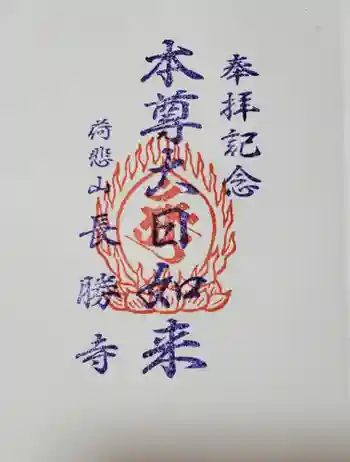 奉拝記念
本尊大日如来
荷悲山長勝寺